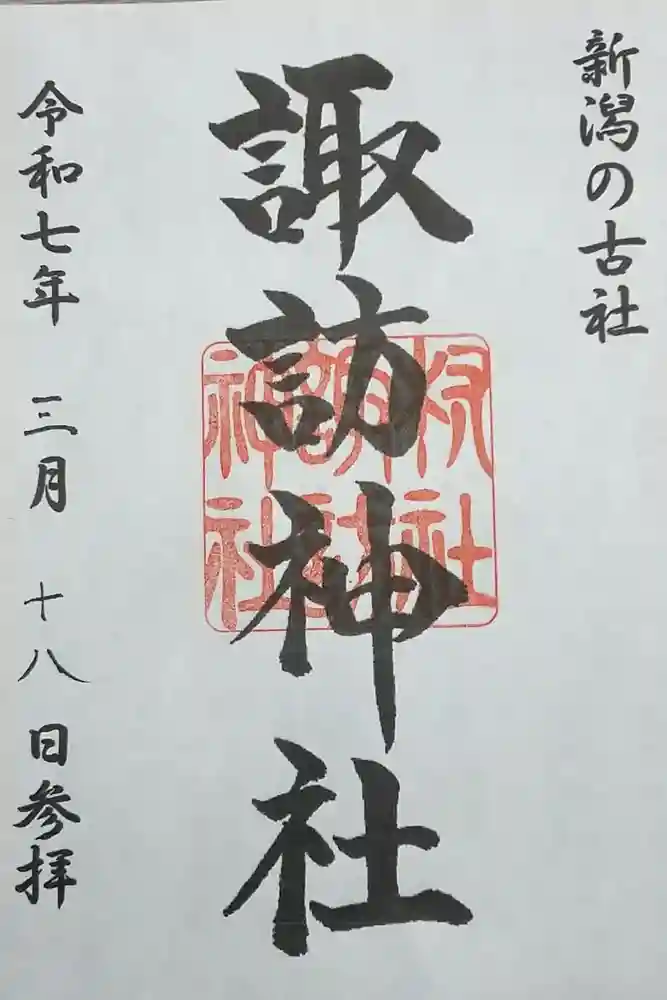 新潟の古社
諏訪神社
令和七年 三月 十八 日参拝